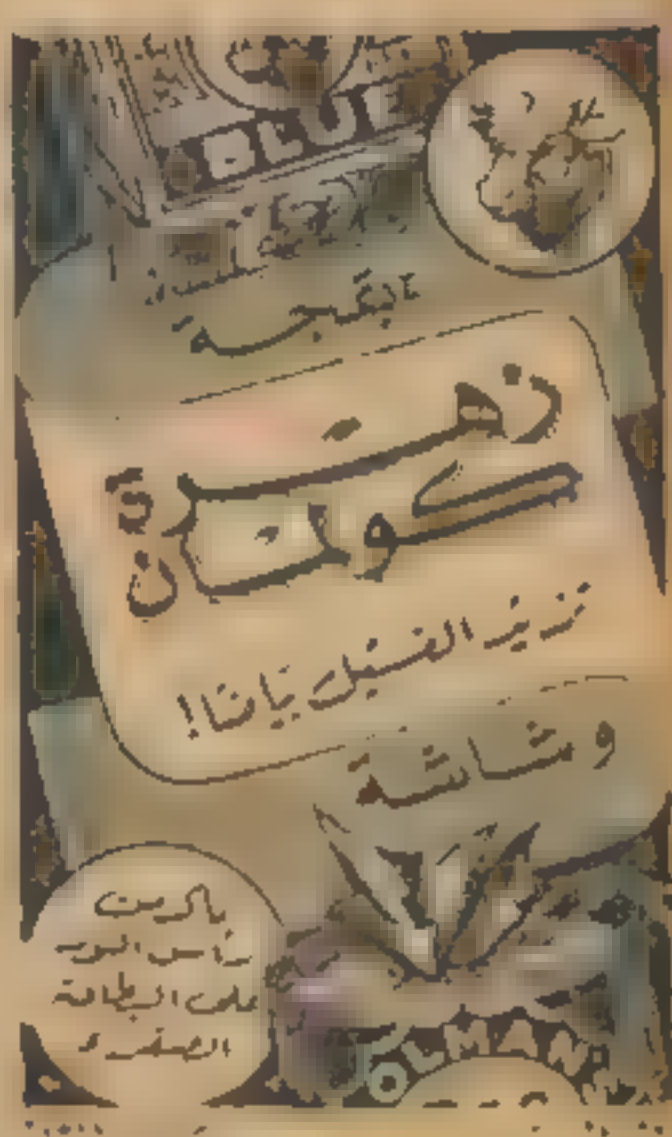 BLUE
زهرة
كولمان
تزيد الغسيل بياضا!
وبشاشة
ماركة
رأس الثور
على البطاقة
الصفراء
COLMAN